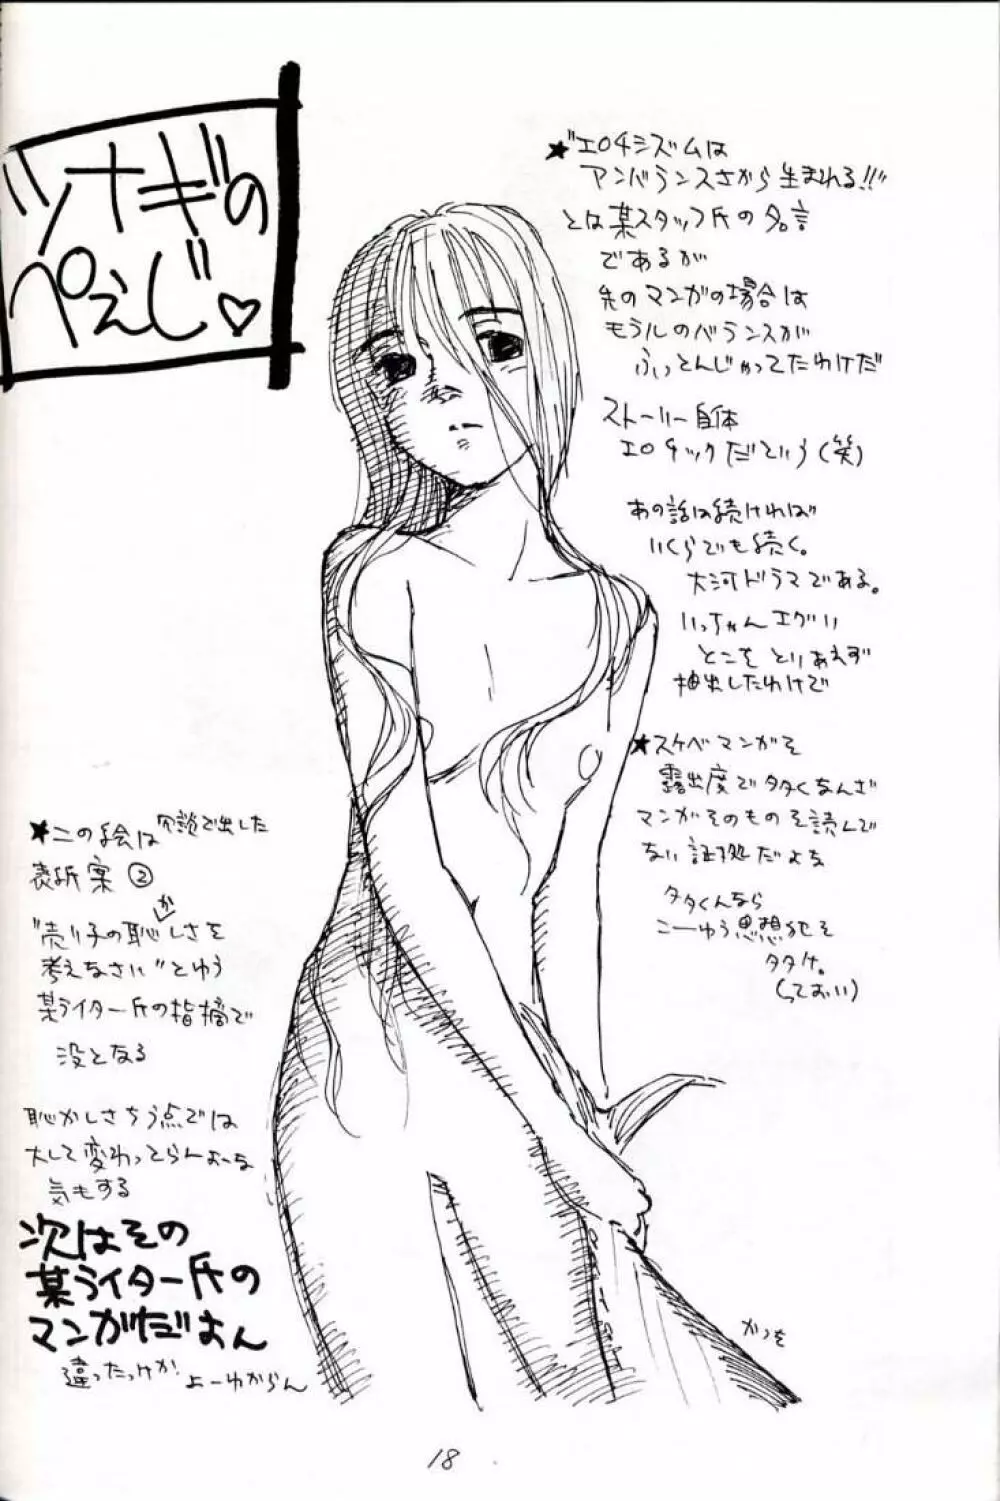 ツナギの
ぺえじ♡
★"エロチシズムは
アンバランスさから生まれる!!"
とは某スタッフ氏の名言
であるが
先のマンガの場合は
モラルのバランスが
ふっとんじゃってたわけだ
ストーリー自体
エロチックだという(笑)
あの話は続ければ
いくらでも続く。
大河ドラマである。
いっちゃんエグい
とこをとりあえず
抽出したわけで
★スケベマンガを
露出度でタタくなんざ
マンガそのものを読んで
ない証拠だよな
タタくんなら
こーゆう思想犯を
タタけ。
(っておい)
★この絵は冗談で出した
表紙案②
"売り子の恥かしさを
考えなさい"とゆう
某ライター氏の指摘で
没となる
恥かしさちう点では
大して変わってらんよーな
気もする
次はその
某ライター氏の
マンガだよん
違ったっけか?よーわからん
かつを
18